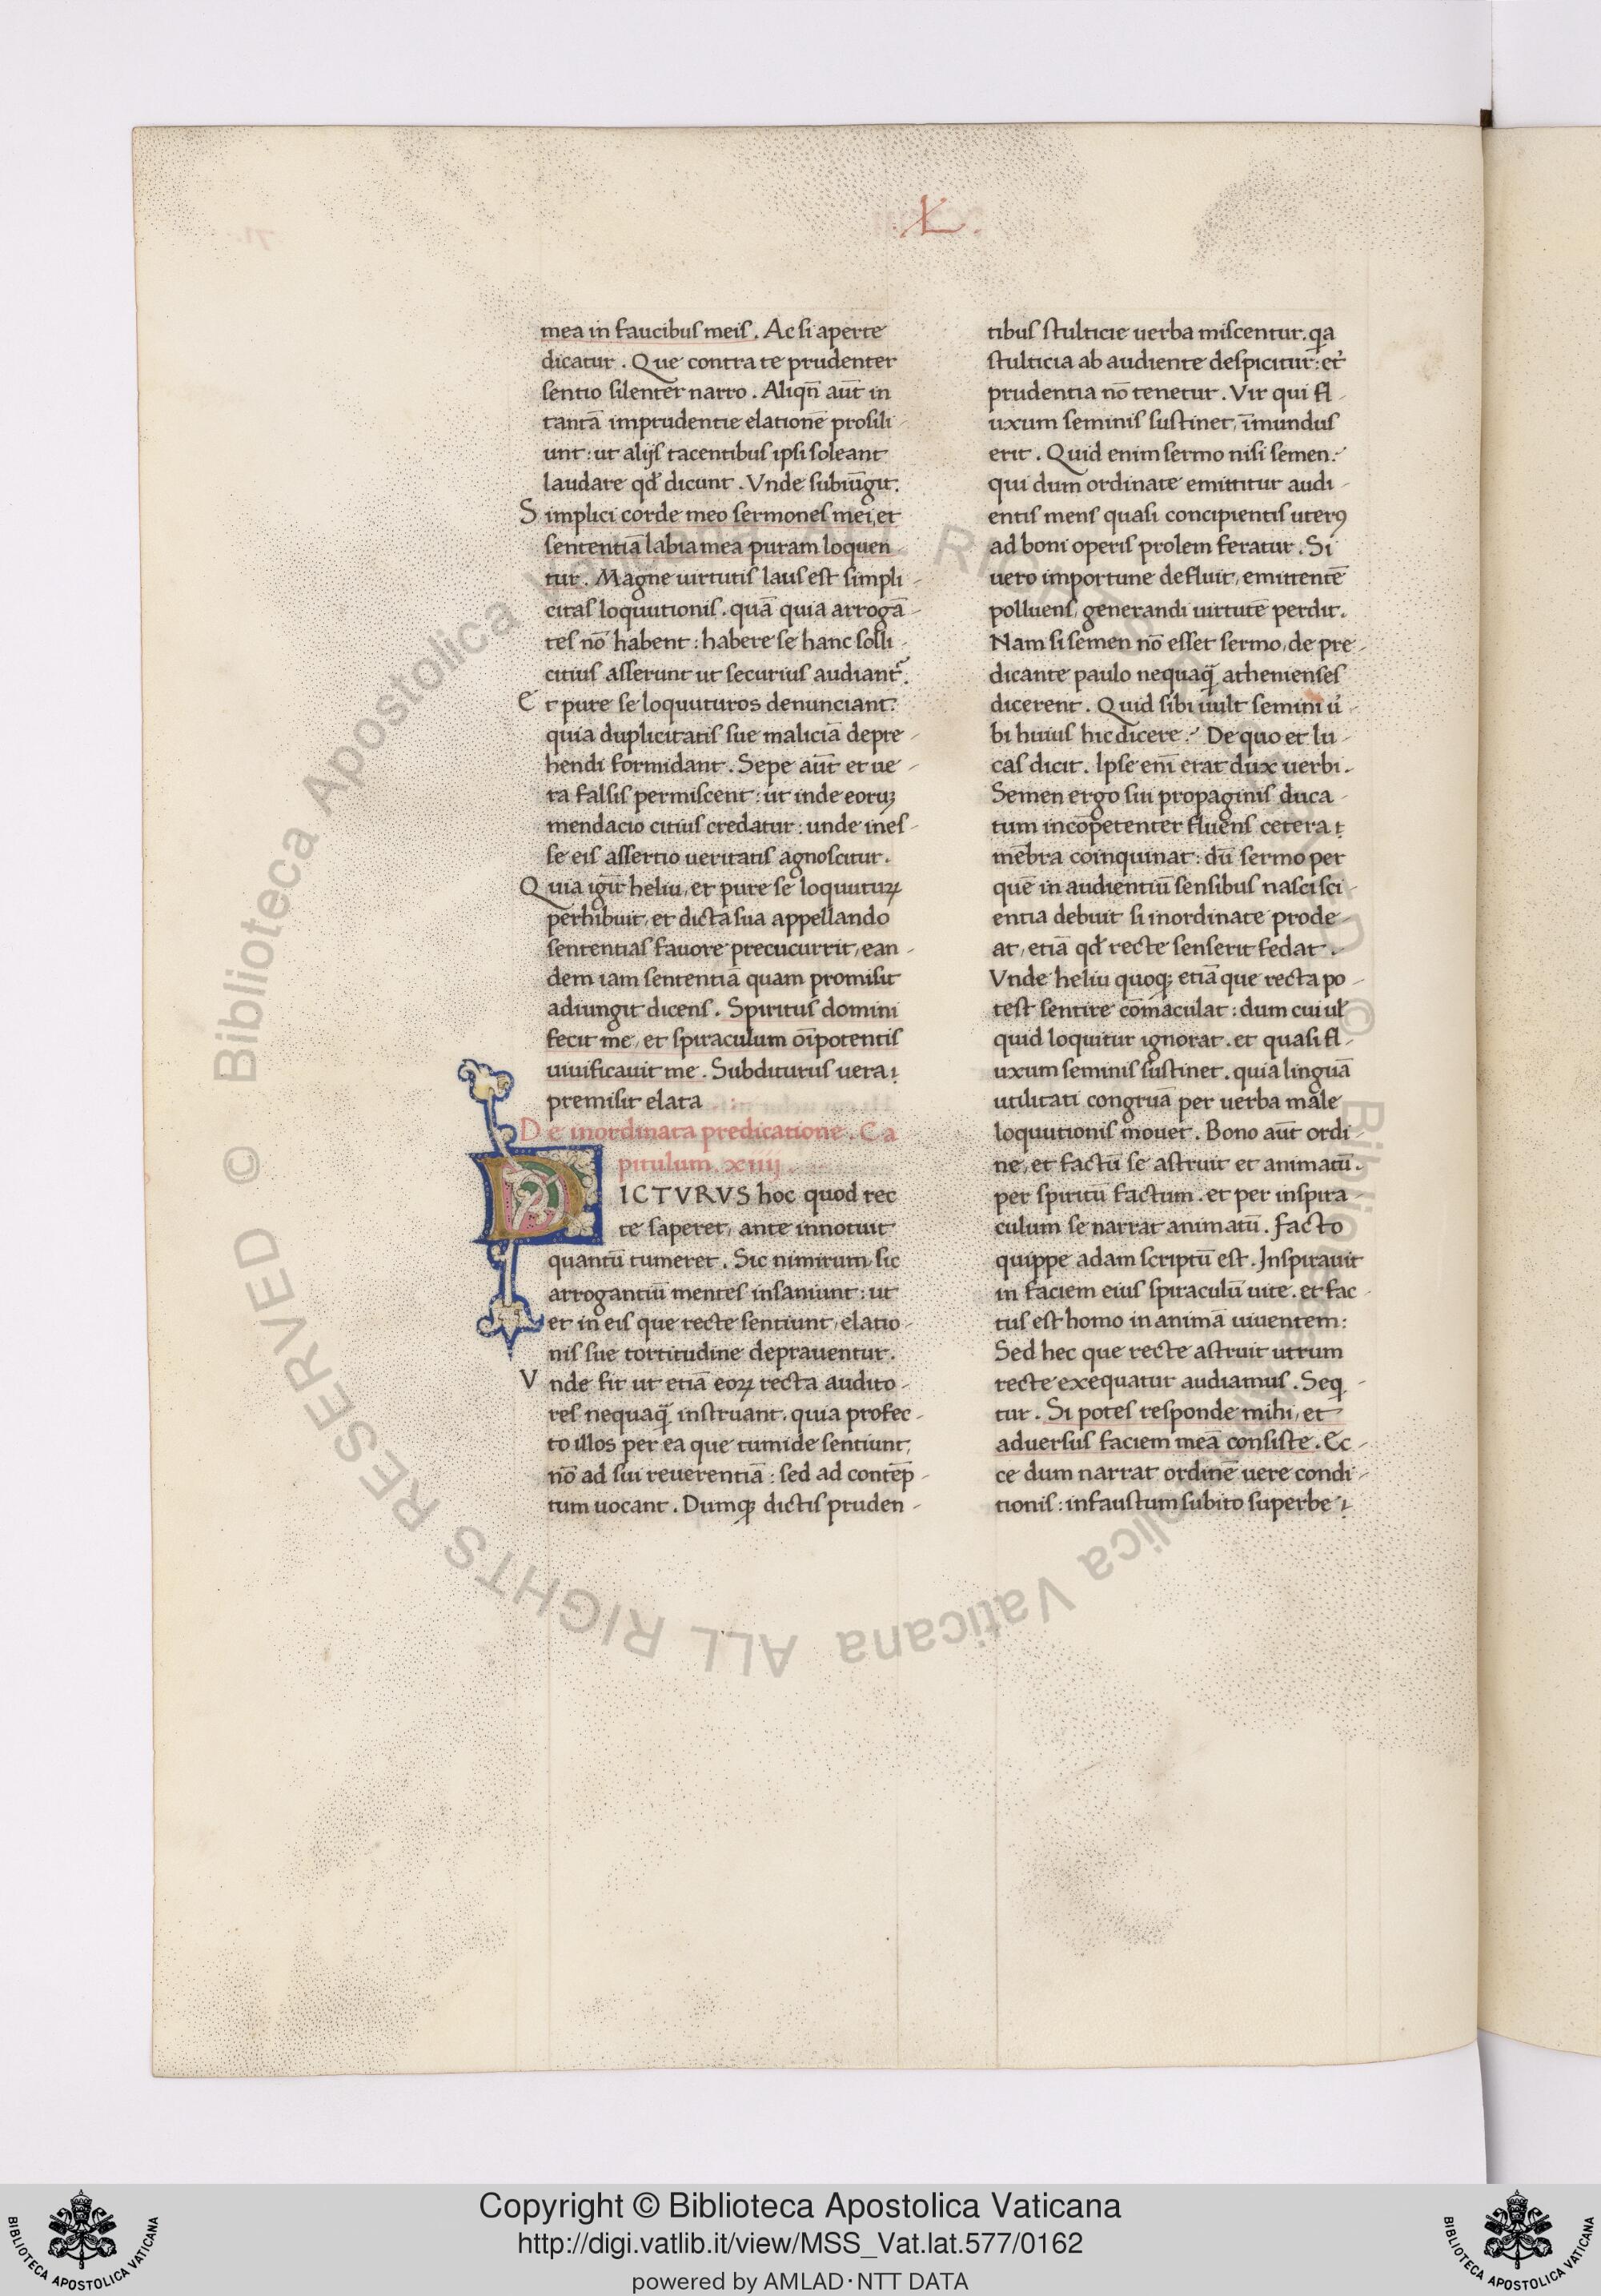 .XL.
mea in faucibus meis. Ac si aperte
dicatur. Que contra te prudenter
sentio silenter narro. Aliqn̄ aut̄ in
tantā imprudentie elationē prosili-
unt: ut alijs tacentibus ipsi soleant
laudare qd̄ dicunt. Vnde subiūgit.
Simplici corde meo sermones mei, et
sententiā labia mea puram loquen
tur. Magne uirtutis laus est simpli-
citas loquutionis. quā quia arrogā-
tes nō habent: habere se hanc solli-
citius asserunt ut securius audiant̄.
Et pure se loquuturos denunciant:
quia duplicitatis sue maliciā depre-
hendi formidant. Sepe aut̄ et ue-
ra falsis permiscent: ut inde eoruꝫ
mendacio citius credatur: unde ines-
se eis assertio ueritatis agnoscitur.
Quia igit̄ heliu, et pure se loquutuꝝ
perhibuit, et dicta sua appellando
sententias fauore precucurrit, ean-
dem iam sententiā quam promisit
adiungit dicens. Spiritus domini
fecit me, et spiraculum oīpotentis
uiuificauit me. Subditurus uera
premisit elata
De inordinata predicatione. Ca
pitulum. xiiij.
DICTVRVS hoc quod rec
te saperet, ante innotuit
quantū tumeret. Sic nimirum sic
arrogantiū mentes insaniunt: ut
et in eis que recte sentiunt, elatio-
nis sue tortitudine deprauentur.
Vnde fit ut etiā eoꝝ recta audito-
res nequaq̄ instruant. quia profec-
to illos per ea que tumide sentiunt,
nō ad sui reuerentiā: sed ad contēp-
tum uocant. Dumqꝫ dictis pruden-
tibus stulticie uerba miscentur. qa
stulticia ab audiente despicitur: et
prudentia nō tenetur. Vir qui fl-
uxum seminis sustinet, īmundus
erit. Quid enim sermo nisi semen?
qui dum ordinate emittitur audi-
entis mens quasi concipientis uterꝰ
ad boni operis prolem feratur. Si
uero importune defluit, emittentē
polluens, generandi uirtutē perdit.
Nam si semen nō esset sermo, de pre-
dicante paulo nequaq̄ athenienses
dicerent. Quid sibi uult semini u̓-
bi huius hic dicere? De quo et lu-
cas dicit. Ipse eni̅ erat dux uerbi.
Semen ergo sui propaginis duca-
tum incōpetenter fluens cetera
mēbra coinquinat: dū sermo per
quē in audientiū sensibus nasci sci-
entia debuit si inordinate prode-
at, etiā qd̄ recte senserit fedat.
Vnde heliu quoqꝫ etiā que recta po-
test sentire cōmaculat: dum cui ul̄
quid loquitur ignorat. et quasi fl-
uxum seminis sustinet. quia linguā
utilitati congruā per uerba male
loquutionis mouet. Bono aut̄ ordi-
ne, et factū se astruit et animatū.
per spiritū factum. et per inspira-
culum se narrat animatū. facto
quippe adam scriptū est. Inspirauit
in faciem eius spiraculū uite. et fac
tus est homo in animā uiuentem:
Sed hec que recte astruit utrum
recte exequatur audiamus. Seq̄-
tur. Si potes responde mihi, et
aduersus faciem meā consiste. Ec-
ce dum narrat ordinē uere condi-
tionis: infaustum subito superbe
Copyright © Biblioteca Apostolica Vaticana
http://digi.vatlib.it/view/MSS_Vat.lat.577/0162
powered by AMLAD·NTT DATA
BIBLIOTECA APOSTOLICA VATICANA
BIBLIOTECA APOSTOLICA VATICANA
© Biblioteca Apostolica Vaticana ALL RIGHTS RESERVED
© Biblioteca Apostolica Vaticana ALL RIGHTS RESERVED